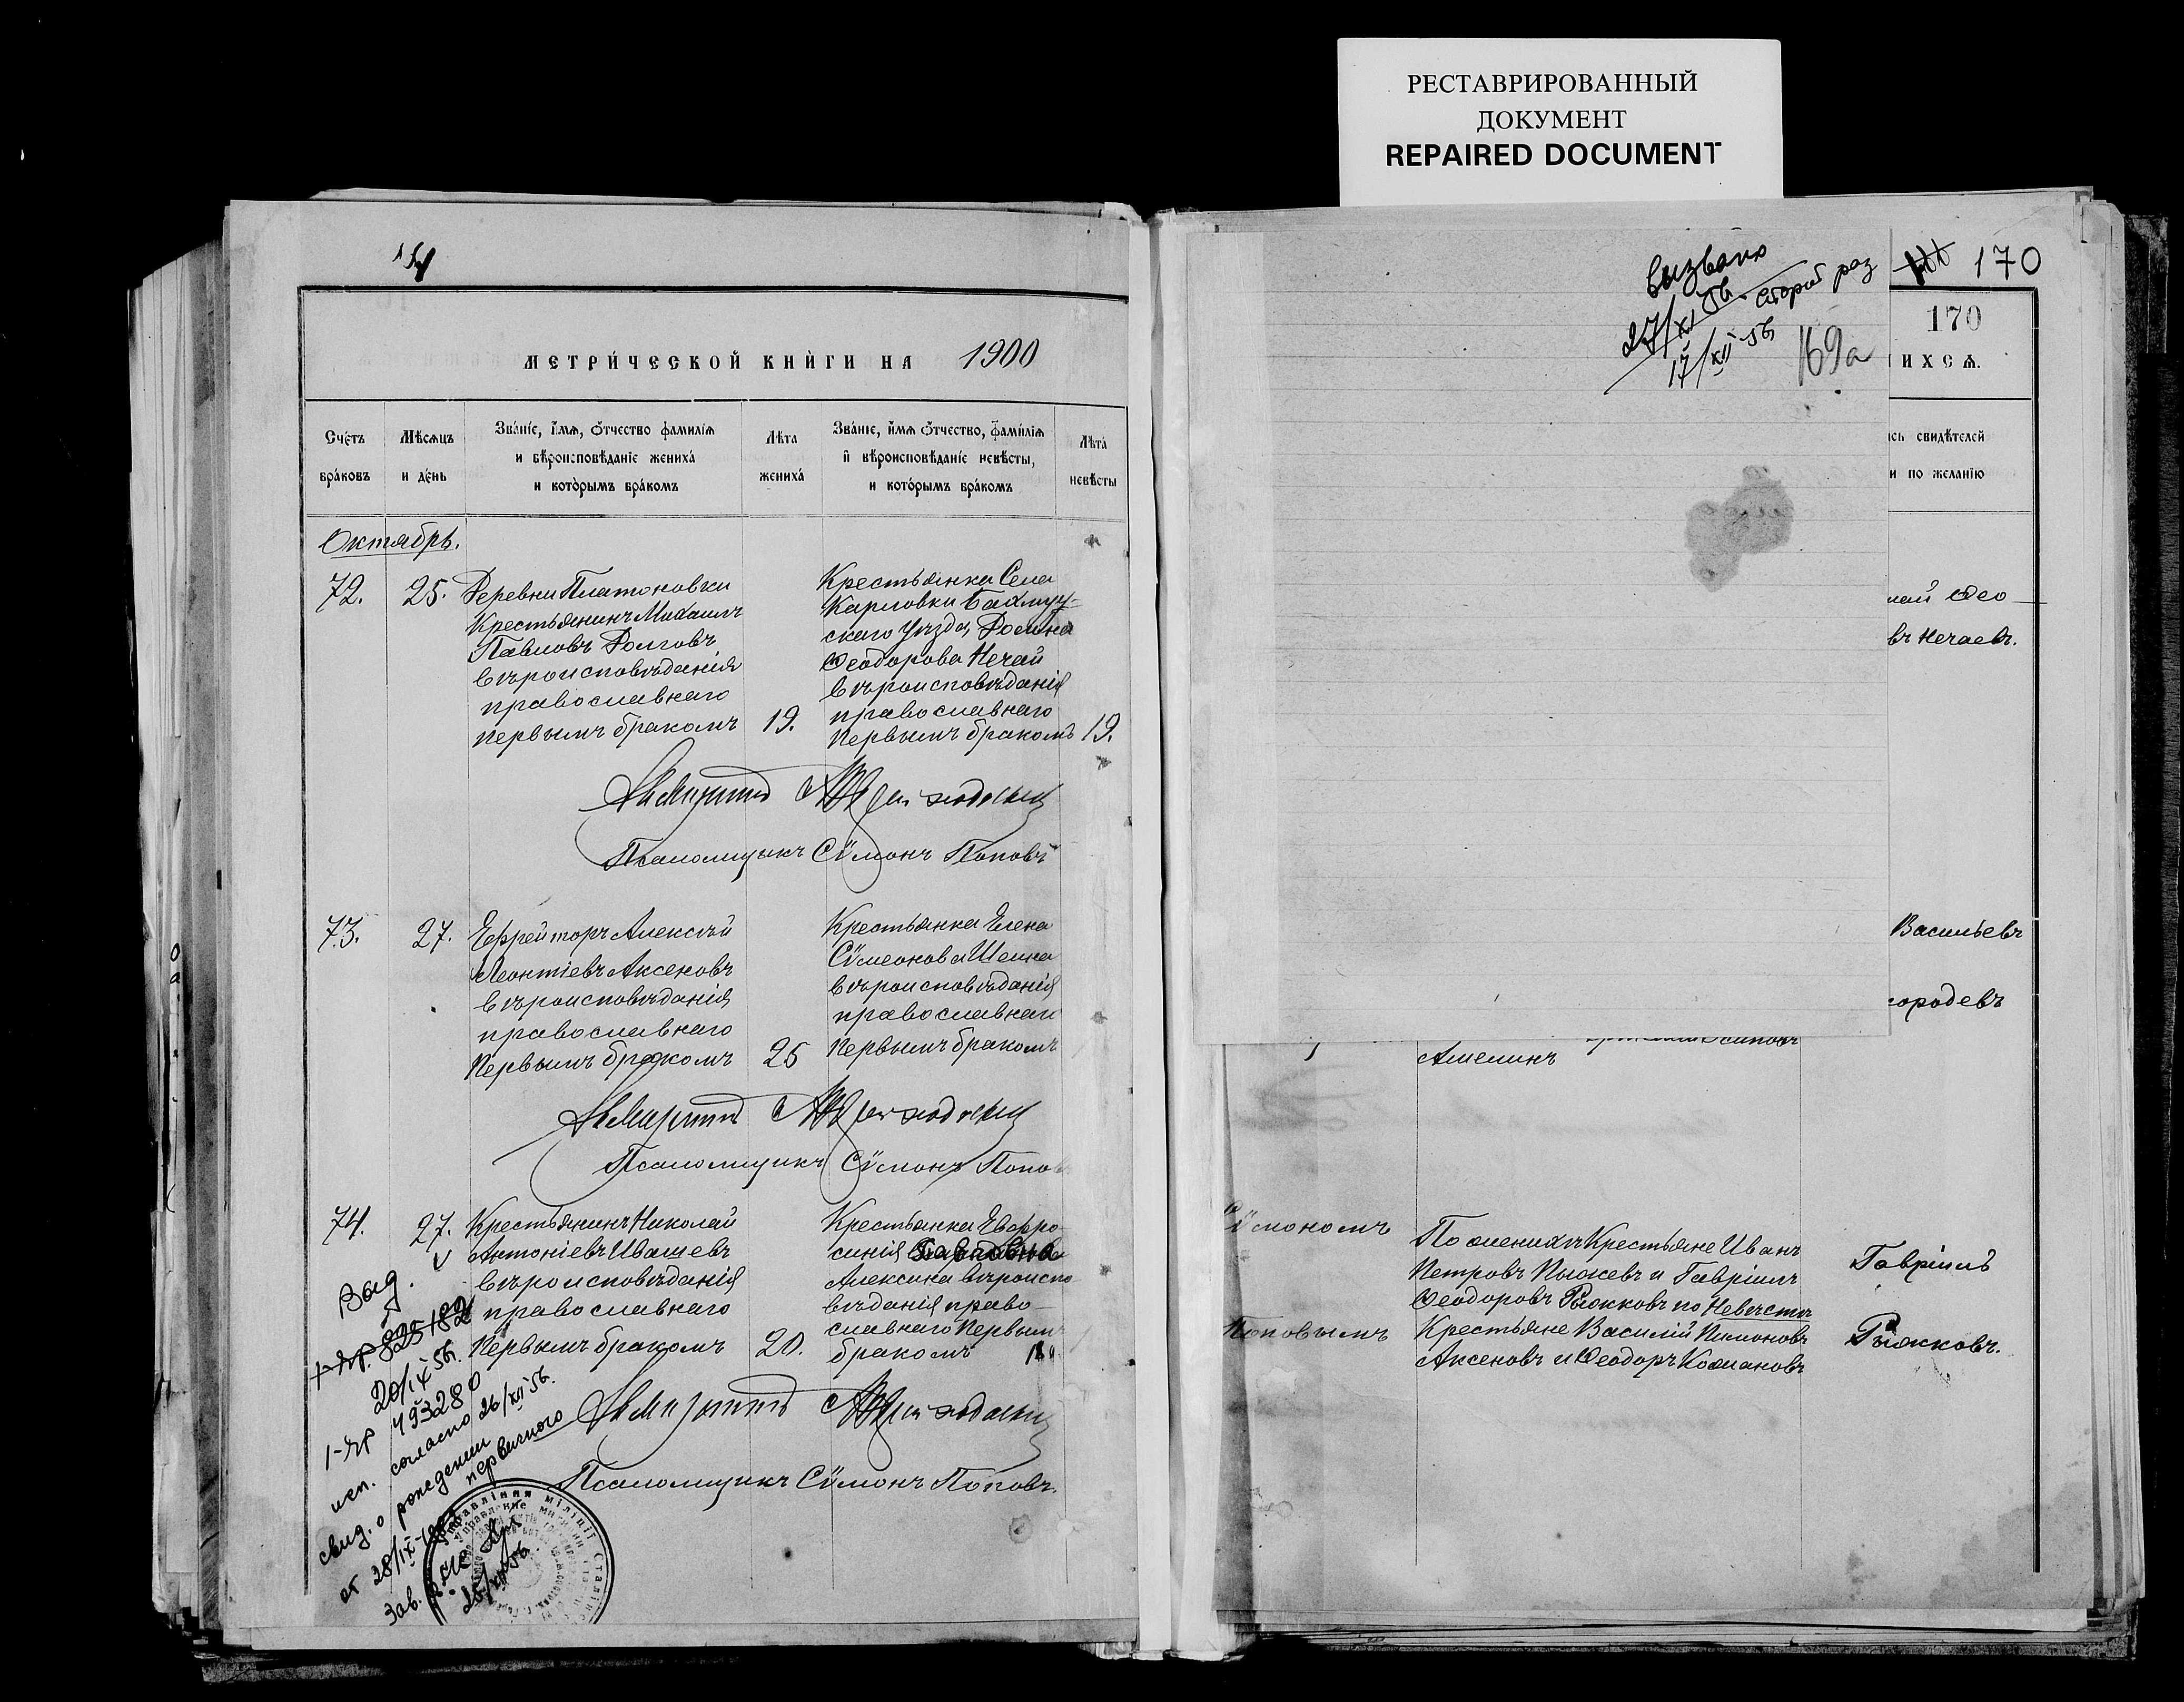 РЕСТАВРИРОВАННЫЙ
ДОКУМЕНТ
REPAIRED DOCUMENT
МЕТРИ́ЧЕСКОЙ КНИ́ГИ НА 1900
Сче́тъ бра́ковъ
Мѣсѧцъ и де́нь
Зва́ніе, и҆́мѧ, ѻ҆́тчество фамилїѧ
и вѣроисповѣ́даніе жениха́
и кото́рымъ бра́комъ
Лѣта жениха́
Зва́ніе, и҆́мѧ ѻ҆́тчество, фами́лїѧ
и҆ вѣроисповѣ́даніе невѣсты,
и кото́рымъ бра́комъ
Лѣта невѣсты
Октябрь.
72.
25.
Деревни Платоновки
Крестьянинъ Михаилъ
Павловъ Долговъ
вѣроисповѣданія
православнаго
первымъ бракомъ
19.
Крестьянка Села
Карловки Бахму-
скаго уѣзда,
Ѳеодорова Нечай
вѣроисповѣданія
православнаго
первымъ бракомъ
19.
Псаломщикъ Сѵмонъ Поповъ
73.
27.
Ефрейторъ Алексѣй
Леонтіевъ Аксеновъ
вѣроисповѣданія
православнаго
Первымъ бракомъ
25
Крестьянка Елена
Сѵмеонова
вѣроисповѣданія
православнаго
первымъ бракомъ
Псаломщикъ Сѵмонъ Попов
74.
27.
Крестьянинъ Николай
Антоніевъ Ивашевъ
вѣроисповѣданія
православнаго
Первымъ бракомъ
20.
Крестьянка Евфро-
синія
Алексина вѣроиспо-
вѣданія право-
славнаго Первымъ
бракомъ
Псаломщикъ Сѵмонъ Поповъ.
Выд.
20/IX 56.
493280
согласно 26/XII 56.
свид. о рождении
первичного
от 28/IX
Зав.
вызвано
27/XI 56. второй раз
17/XII 56
169а
170
170
ИХСѦ.
сь свидѣтелей
и по желанію
лай Ѳео
въ Нечаевъ.
Васильевъ
городевъ
Сѵмономъ
Поповымъ
По женихѣ Крестьяне Иванъ
Петровъ и Гавріилъ
Ѳеодоровъ по Невѣстѣ
Крестьяне Василій Пимоновъ
Аксеновъ и Ѳеодоръ
Гавріилъ